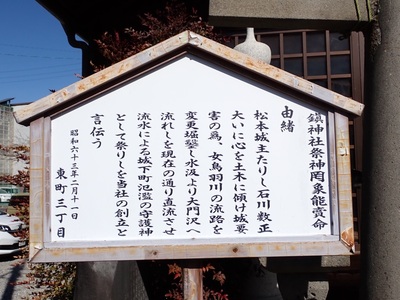 鎮神社祭神罔象能賣命
由緒
松本城主たりし石川数正
大いに心を土木に傾け城要
害の為、女鳥羽川の流路を
変更堀鑿し水汲より大門沢へ
流れしを現在の通り直流させ
流水による城下町氾濫の守護神
として祭りしを当社の創立と
言伝う
昭和六十三年二月十一日
東町三丁目